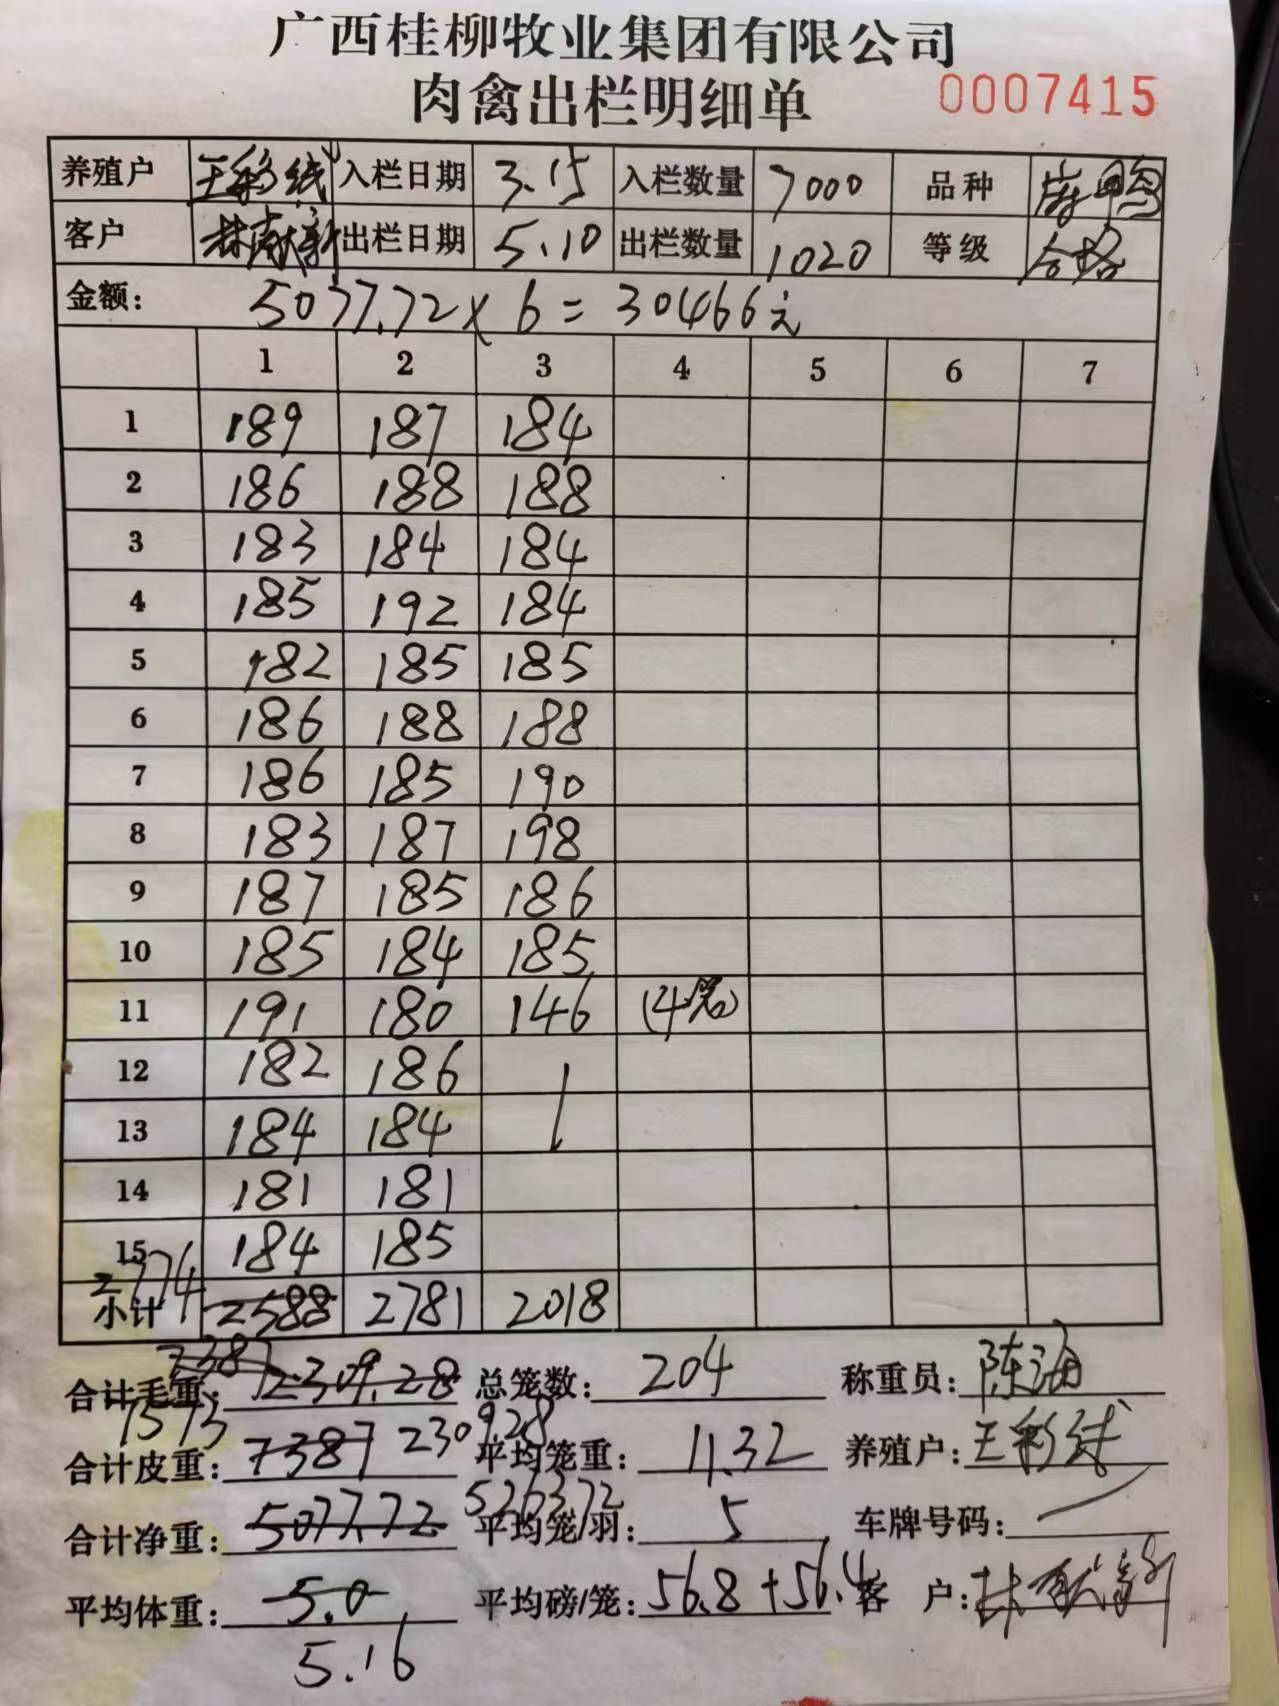 广西桂柳牧业集团有限公司
肉禽出栏明细单 0007415
养殖户 王彩线 入栏日期 3.15 入栏数量 7000 品种 麻鸭
客户 林献新 出栏日期 5.10 出栏数量 1020 等级 合格
金额: 5077.72×6=30466元
1 2 3 4 5 6 7
1 189 187 184
2 186 188 188
3 183 184 184
4 185 192 184
5 182 185 185
6 186 188 188
7 186 185 190
8 183 187 198
9 187 185 186
10 185 184 185
11 191 180 146 (4笼)
12 182 186
13 184 184
14 181 181
15 184 185
2774
小计 2588 2781 2018
7387
合计毛重: 2309.28 总笼数: 204 称重员: 陈海
7573 2309.28
合计皮重: 7387 平均笼重: 11.32 养殖户: 王彩线
5263.72
合计净重: 5077.72 平均笼/羽: 5 车牌号码:
平均体重: 5.0 平均磅/笼: 56.8+56.4 客 户: 林献新
5.16